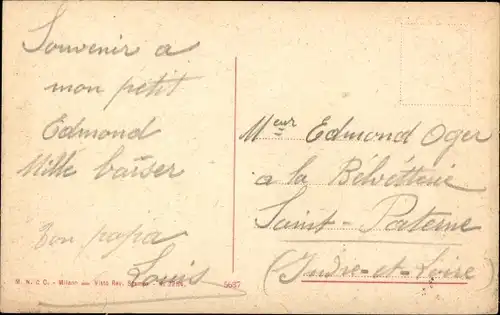 Souvenir a
mon petit
Edmond
Mille baiser
Ton papa
Louis
Meur Edmond Oger
a la
Saint-Paterne
(Indre-et-Loire)
M. N. & C. - Milano
5687